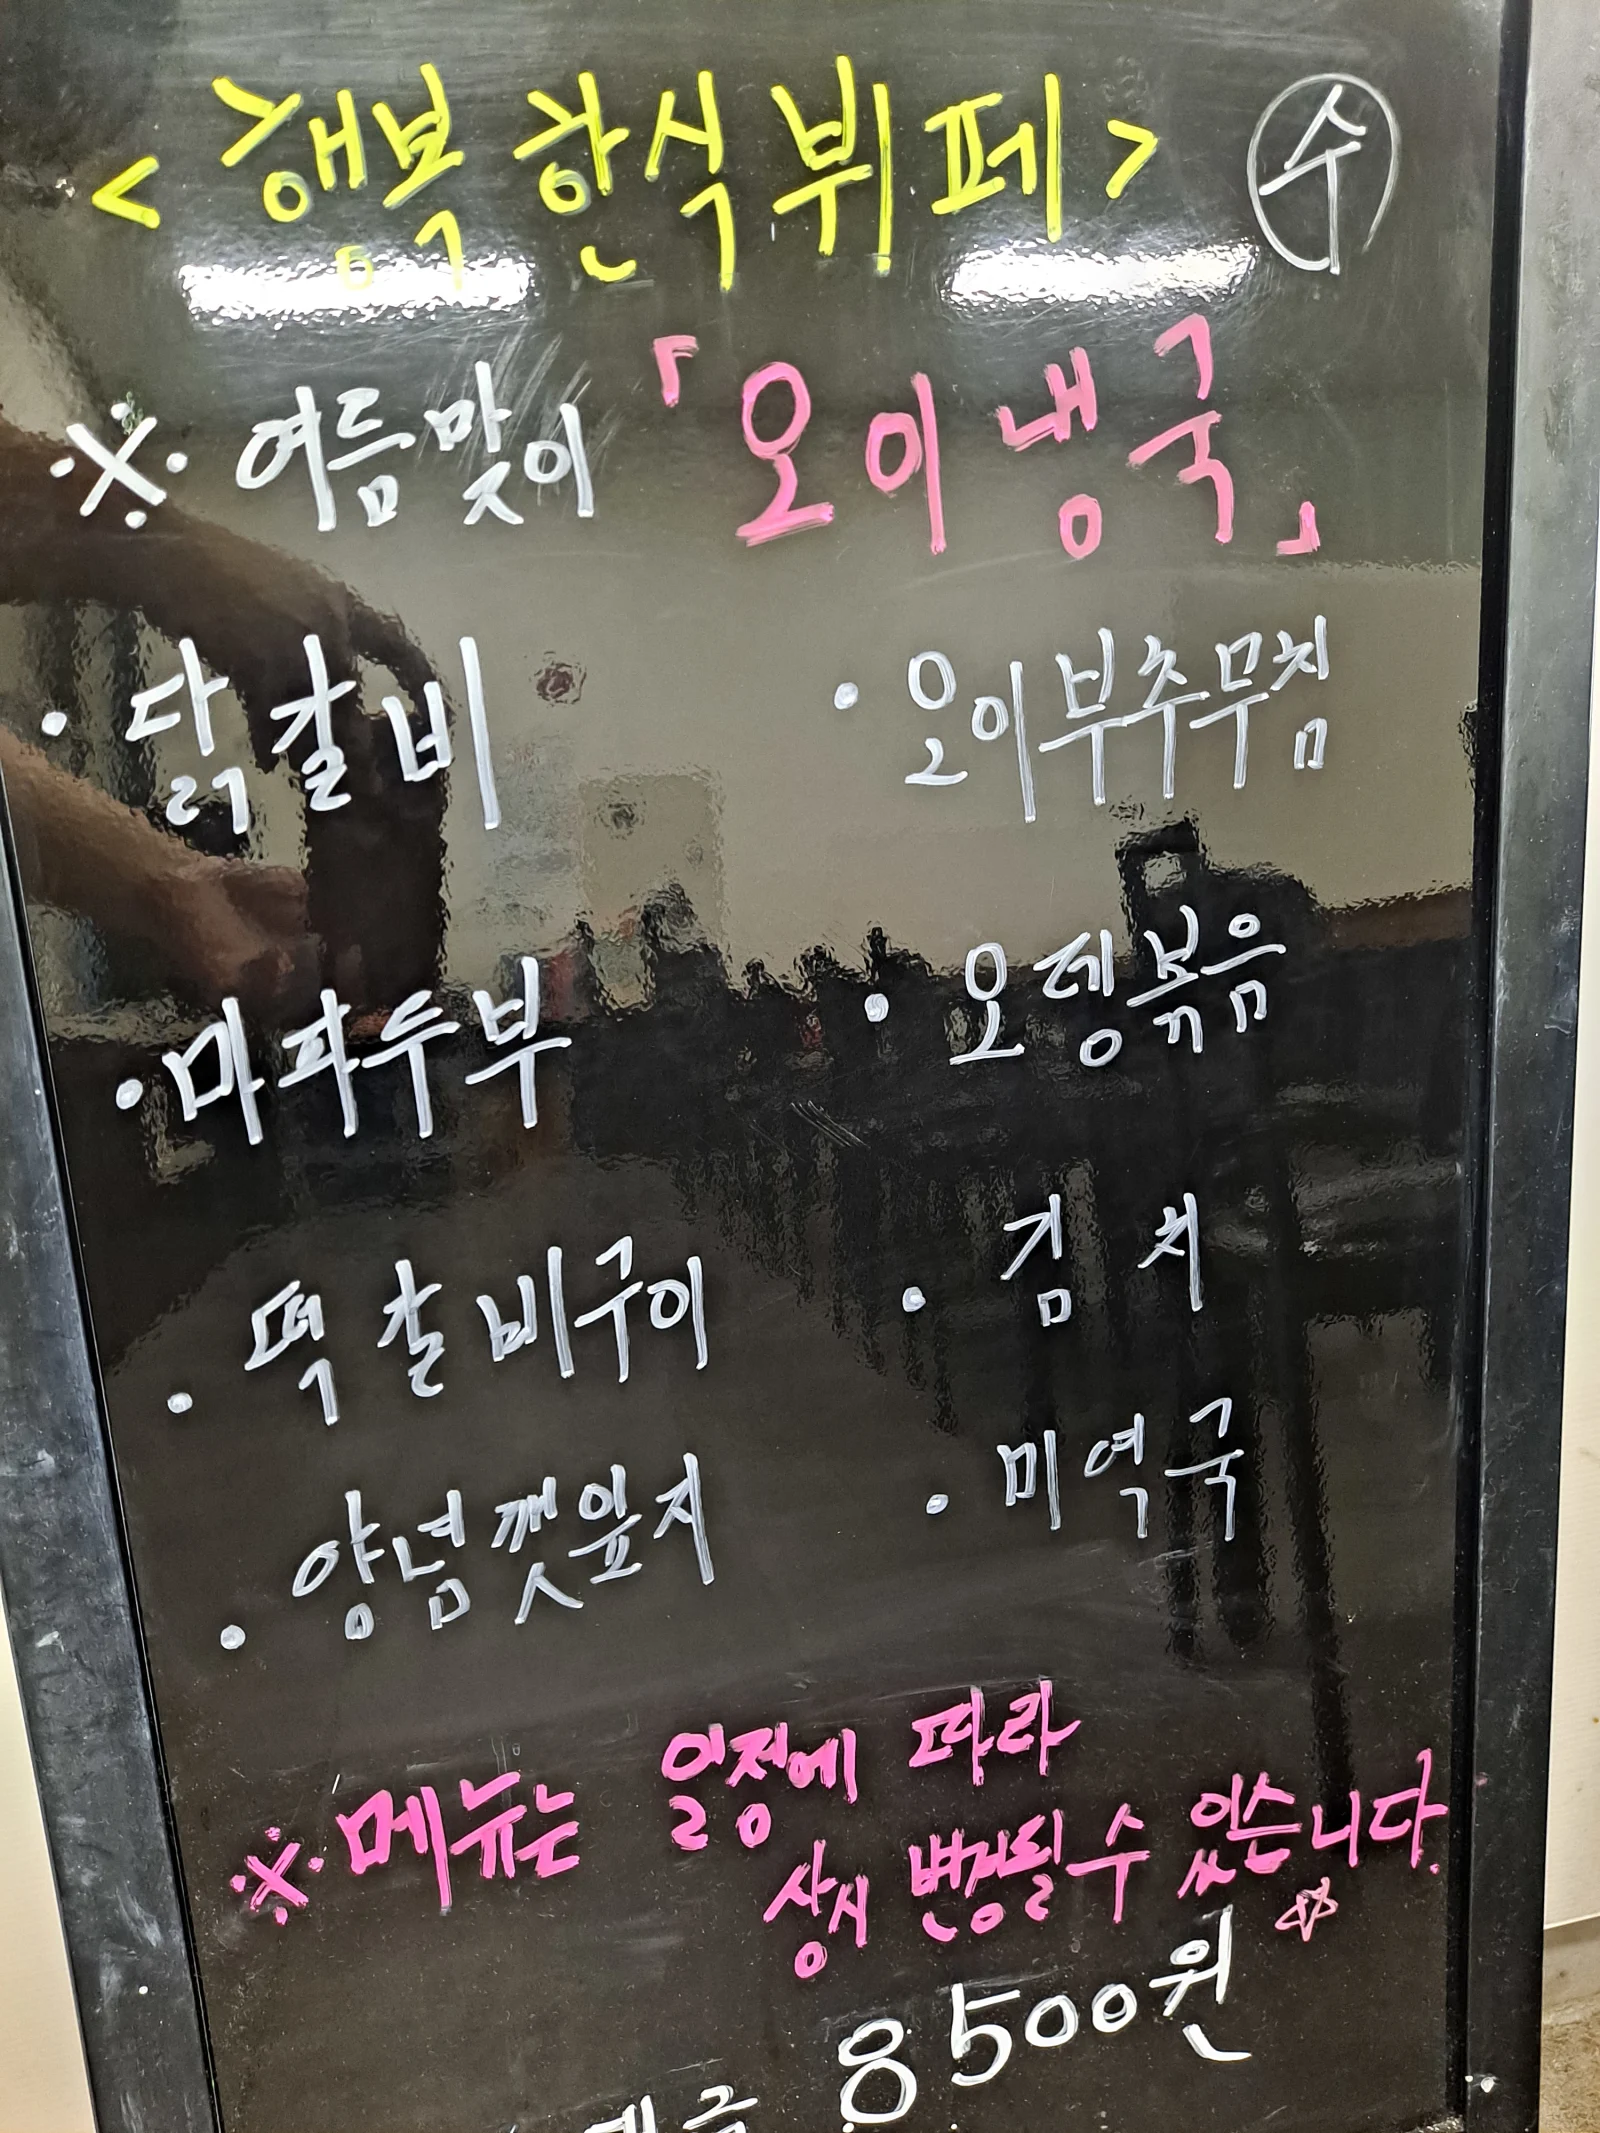 <행복 한식뷔페> ㊌수
※ 여름맞이 「오이냉국」
· 닭갈비
· 오이부추무침
· 마파두부
· 오뎅볶음
· 떡갈비구이
· 김치
· 양념깻잎지
· 미역국
※ 메뉴는 일정에 따라
상시 변경될 수 있습니다. ☆
8500원